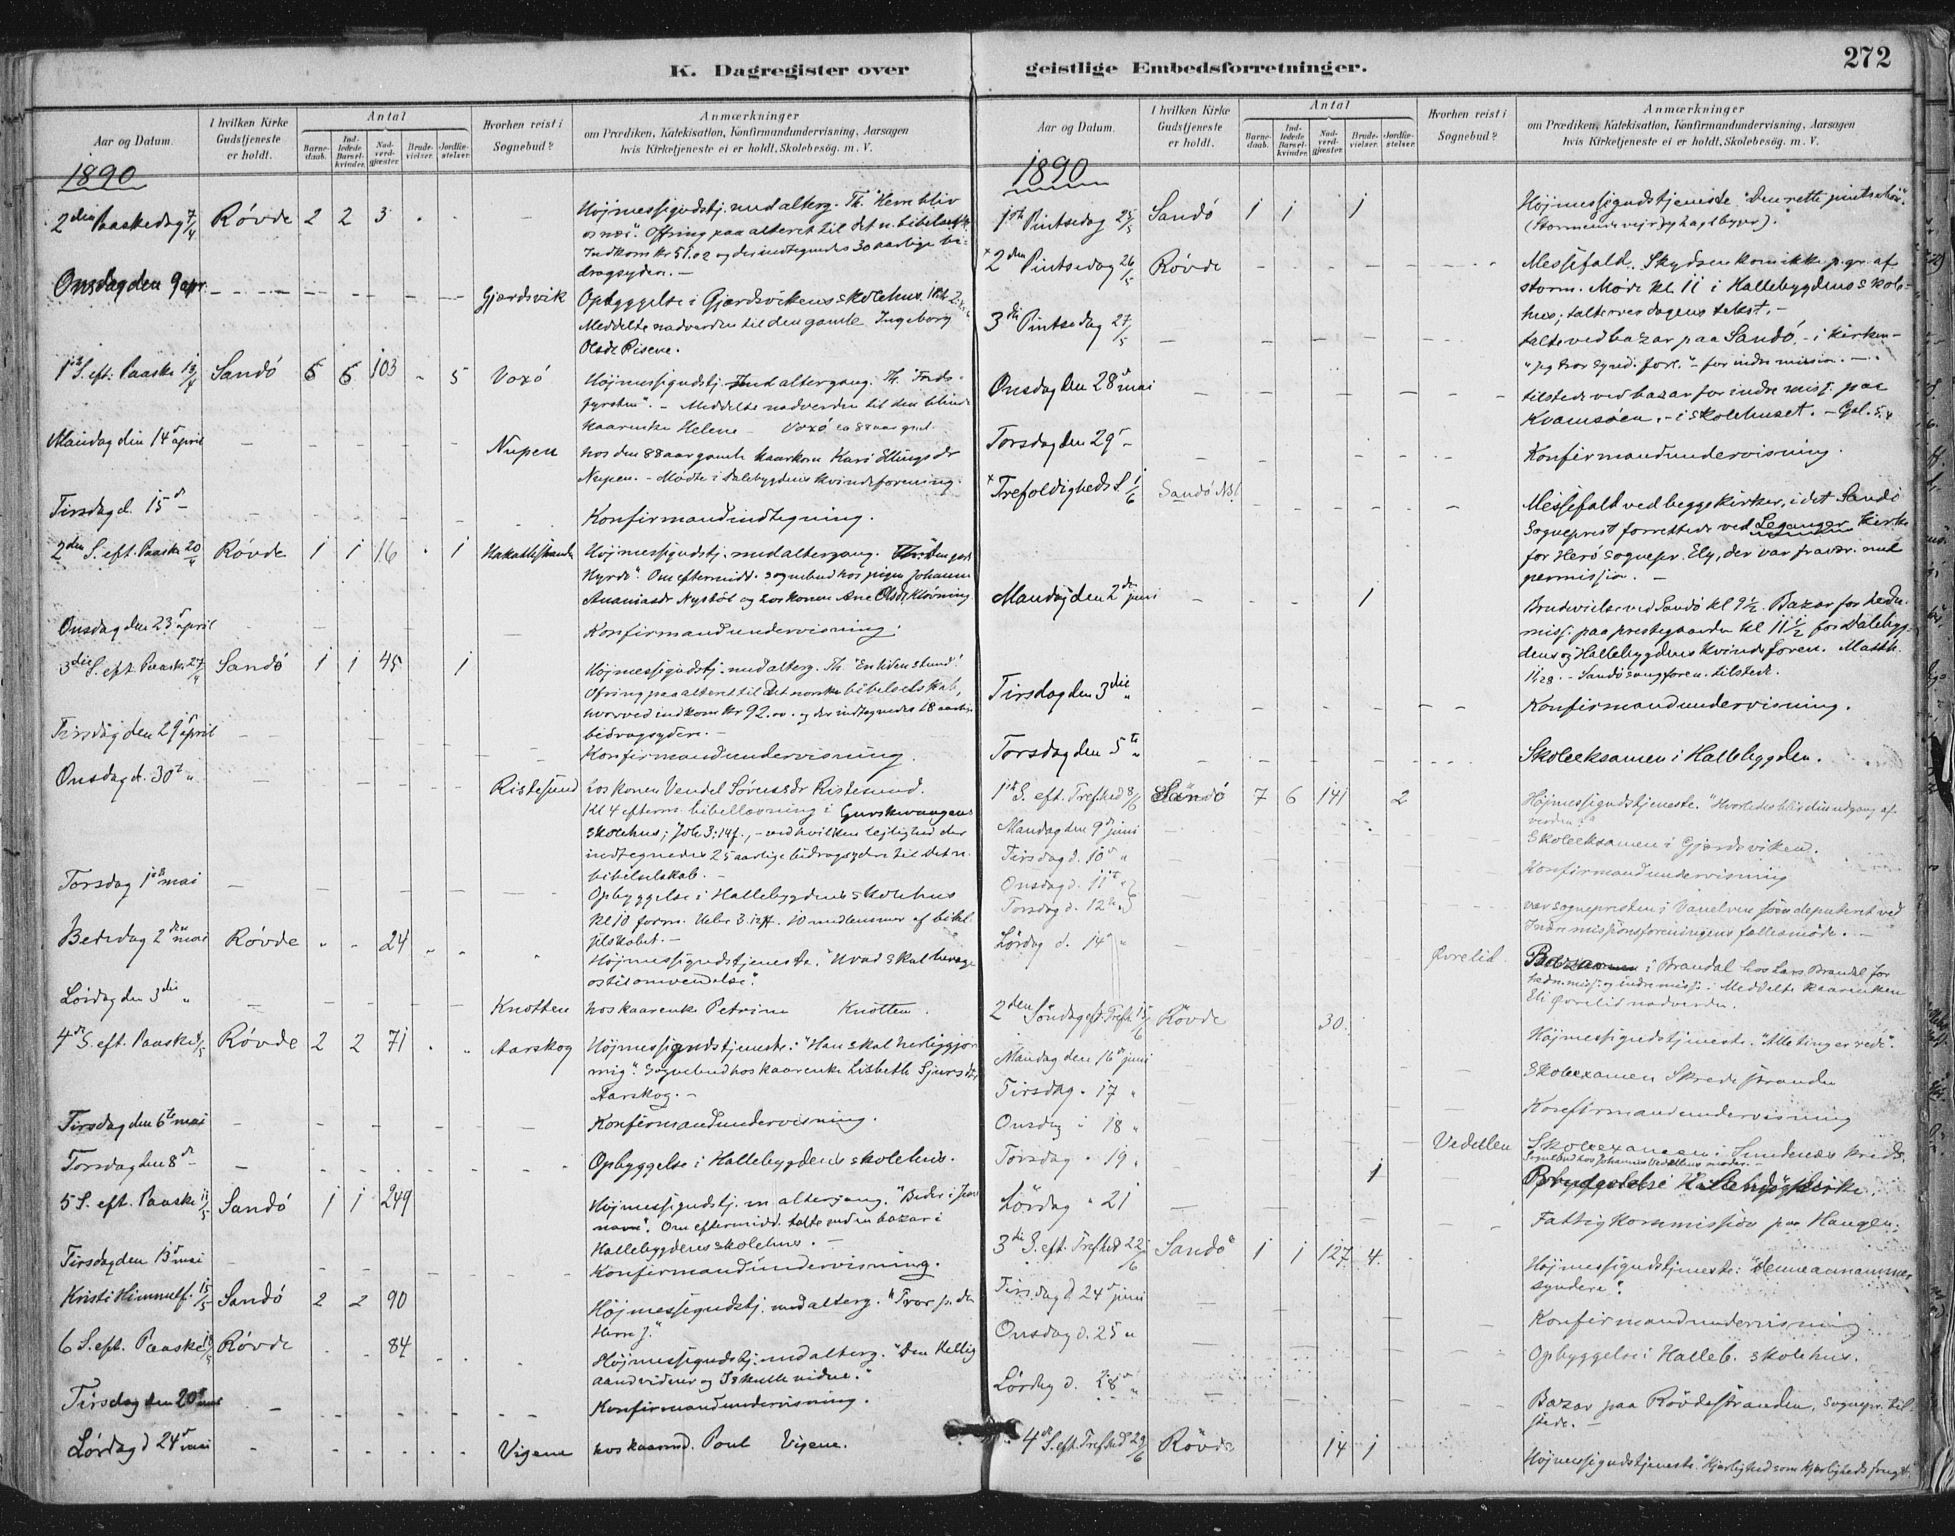 K. Dagregister over geistlige Embedsforretninger.
272
Aar og Datum.
I hvilken Kirke Gudstjeneste er holdt.
Antal
Barnedaab.
Indledede Barselkvinder.
Nadverdgjæster.
Brudevielser.
Jordfæstelser.
Hvorhen reist i Sognebud?
Anmærkninger
om Prædiken, Katekisation, Konfirmandundervisning, Aarsagen
hvis Kirketjeneste ei er holdt, Skolebesøg. m. V.
1890
2den Paaskedag 7/4 Røvde 2 2 3 . - Højmessigudstj. med alterg. Th. "Herre bliv
os nær". Ofring paa alteret til det n. bibelselsk.
Indkom kr 51.02 og der indtegnedes 30 aarlige bi-
dragsydere. -
Onsdag den 9 apr. Gjærdsvik Opbyggelse i Gjærdsvikens skolehus.
Meddelte nadverden til den gamle Ingeborg
Olsdr Risene.
1ste S. eft. Paaske 13/4 Sandö 6 6 103 - 5 Voxö Højmessigudstj. med altergang. Th. "Freds-
fyrsten". - Meddelte nadverden til den blinde
kaarenke Helene Voxö ca 88 aar gml.
Mandag den 14de april Nupen hos den 88 aar gamle kaarkone Kari Ellingsdr
Nupen. - Mødte i Dalebygdens kvindeforening.
Tirsdag d. 15de - Konfirmandindtegning.
2den S. eft. Paaske 20/4 Røvde 1 1 16 . 1 Hakallestrand Højmessigudstj. med altergang. Th: "Den gode
Hyrde". Om eftermidd. sognebud hos pigen Johanne
Ananiasdr Nystöl og hos konen Ane Olsdr Kløvning
Onsdag den 23de april - Konfirmandundervisning.
3die S. eft. Paaske 27/4 Sandö 1 1 45 1 Højmessigudstj. med alterg. Th. "En liden stund".
Ofring paa alteret til det norske bibelselskab,
hvorved indkom kr 92.00. og der indtegnedes 18 aarlige
bidragsydere. -
Tirsdag den 29de april - Konfirmandundervisning.
Onsdag d. 30te " Ristesund hos konen Vendel Sørensdr Ristesund.
Kl 4 efterm. bibellæsning i Gurskevaagens
skolehus; Joh. 3: 14 f., - ved hvilken lejlighed der
indtegnedes 25 aarlige bidragsydere til Det n.
bibelselskab. -
Torsdag 1ste mai Opbyggelse i Hallebygdens skolehus
kl 10 form. Hebr. 3. 12 ff. 10 medlemmer af bibel-
selskabet. -
Bededag 2den mai Røvde " - 24 Højmessigudstjeneste. "Hvad skal bevæge
os til omvendelse".
Lørdag den 3die " Knotten hos kaarenke Petrine Knotten.
4de S. eft. Paaske 4/5 Røvde 2 2 71 . " Aarskog Højmessigudstjeneste: "Han skal herliggjøre
mig". Sognebud hos kaarenke Lisbeth Sjursdr
Aarskog. -
Tirsdag den 6te mai Konfirmandundervisning.
Torsdag den 8de - Opbyggelse i Hallebygdens skolehus.
5 S. eft. Paaske 11/5 Sandö 1 1 249 Højmessigudstj. m altergang. "Beder i Jesu
navn". Om eftermidd. talte ved en bazar i
Hallebygdens skolehus. -
Tirsdag den 13de mai Konfirmandundervisning.
Kristi Himmelf. 15/5 Sandö 2 2 90 Højmessigudstj. med alterg. "Tror paa den
Herre J."
6 S. eft. Paaske 18/5 Røvde 84 Højmessigudstj. med alterg. "Den Hellig
aand vidner og I skulle vidne."
Tirsdag den 20de mai Konfirmandundervisning.
Lørdag d 24de mai Vigene hos kaarmd. Poul Vigene.
Aar og Datum.
I hvilken Kirke Gudstjeneste er holdt.
Antal
Barnedaab.
Indledede Barselkvinder.
Nadverdgjæster.
Brudevielser.
Jordfæstelser.
Hvorhen reist i Sognebud?
Anmærkninger
om Prædiken, Katekisation, Konfirmandundervisning, Aarsagen
hvis Kirketjeneste ei er holdt, Skolebesøg. m. V.
1890
1ste Pintsedag 25/5 Sandö 1 1 1 Højmessigudstjeneste "Den rette pintse
(Stormende vejr og haglbyger).
×2den Pintsedag 26/5 Røvde Messefald. Skydsen kom ikke p. gr. af
storm. Møde kl. 11 i Hallebygdens skole-
hus; taltes over dagens tekst. -
3die Pintsedag 27/5 talte ved bazar paa Sandö - i kirken -
for indre mission. -
Onsdag den 28de mai tilstede ved bazar for indre miss. paa
Kvamsøen. - i skolehuset. - Gal. 5,4
Torsdag den 29de - Konfirmandundervisning.
×Trefoldigheds S. 1/6 Sandö NB! Messefald ved begge kirker, idet Sandö
Sogneprest forrettede ved Leganger kirke
for Herö sognepr. Ely, der var fravær. med
permission. -
Mandag den 2den juni 1 Brudevielse ved Sandö kl 9½. Bazar for hedn.
miss. paa prestegaarden kl 11½ for Dalebyg-
dens og Hallebygdens kvindeforen. Matth.
11.28. - Sandö sangforen. tilstede.
Tirsdag den 3die " Konfirmandundervisning.
Torsdag den 5te " Skoleeksamen i Hallebygden.
1ste S. eft. Trefhed 8/6 Sandö 7 6 141 2 Højmessigudstjeneste. "Hvorledes blir din udgang af
verden?"
Mandag den 9de juni Skoleeksamen i Gjærdsviken.
Tirsdag d. 10de " Konfirmandundervisning
Onsdag d. 11te "
Torsdag d. 12te " var sognepresten i Vanelven som deputeret ved
Indre missionsforeningens fællesmøde. -
Lørdag d. 14de " Øvrelid. Bazar i Brandal hos Lars Brandal for
hedn. miss. og indre miss. Meddelte kaarenken
Eli Øvrelid nadverden.
2den Søndag eft. Trefh. 15/6 Røvde 30. Højmessigudstjeneste. "Alle ting er rede".
Mandag den 16de juni Skoleexamen Skredestranden
Tirsdag " 17 " Konfirmandundervisning
Onsdag " 18 " Vedellen Skoleexamen i Sundenæs kreds.
Sognebud hos Johannes Vedellens moder. -
Torsdag " 19 " 1
Lørdag " 21 Fattigkommission paa Haugen.
3die S. eft. Trefhed 22/6 Sandö 1 1 127 4. Højmessigudstjeneste: "Denne annammer
syndere".
Tirsdag d. 24de juni Konfirmandundervisning
Onsdag d. 25 " Opbyggelse i Halleb. skolehus.
Lørdag d. 28de " Bazar paa Røvdestranden, sognepr. til-
stede. -
4de S. eft. Trefhed 29/6 Røvde 14 1 Højmessigudstjeneste. "Kjærlighed som kjærligheds frugt."